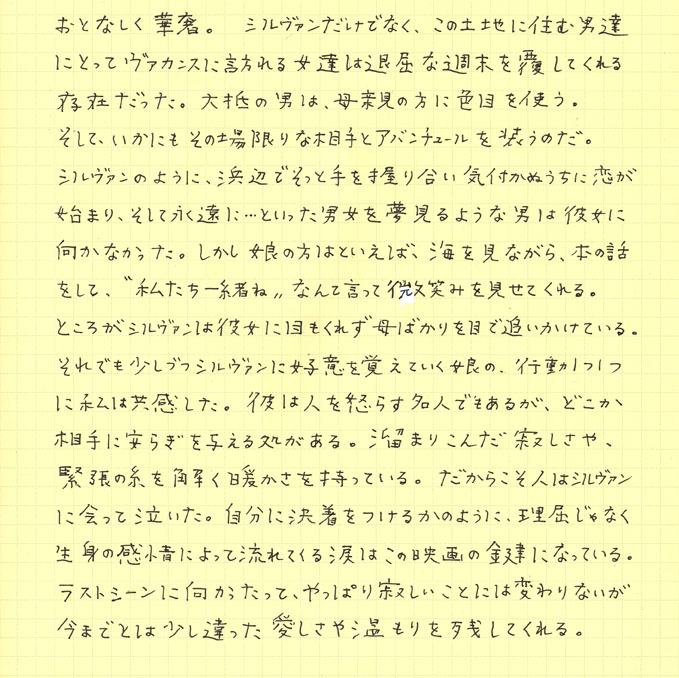 おとなしく華奢。 シルヴァンだけでなく、この土地に住む男達
にとってヴァカンスに訪れる女達は退屈な週末を覆してくれる
存在だった。大抵の男は、母親の方に色目を使う。
そして、いかにもその場限りな相手とアバンチュールを装うのだ。
シルヴァンのように、浜辺でそっと手を握り合い気付かぬうちに恋が
始まり、そして永遠に…といった男女を夢見るような男は彼女に
向かなかった。しかし娘の方はといえば、海を見ながら、本の話
をして、“私たち一緒ね„なんて言って微笑みを見せてくれる。
ところがシルヴァンは彼女に目もくれず母ばかりを目で追いかけている。
それでも少しづつシルヴァンに好意を覚えていく娘の、行動1つ1つ
に私は共感した。彼は人を怒らす名人でもあるが、どこか
相手に安らぎを与える処がある。溜まりこんだ寂しさや、
緊張の糸を解く暖かさを持っている。だからこそ人はシルヴァン
に会って泣いた。自分に決着をつけるかのように、理屈じゃなく
生身の感情によって流れてくる涙はこの映画の鍵になっている。
ラストシーンに向かったって、やっぱり寂しいことには変わりないが
今までとは少し違った愛しさや温もりを残してくれる。